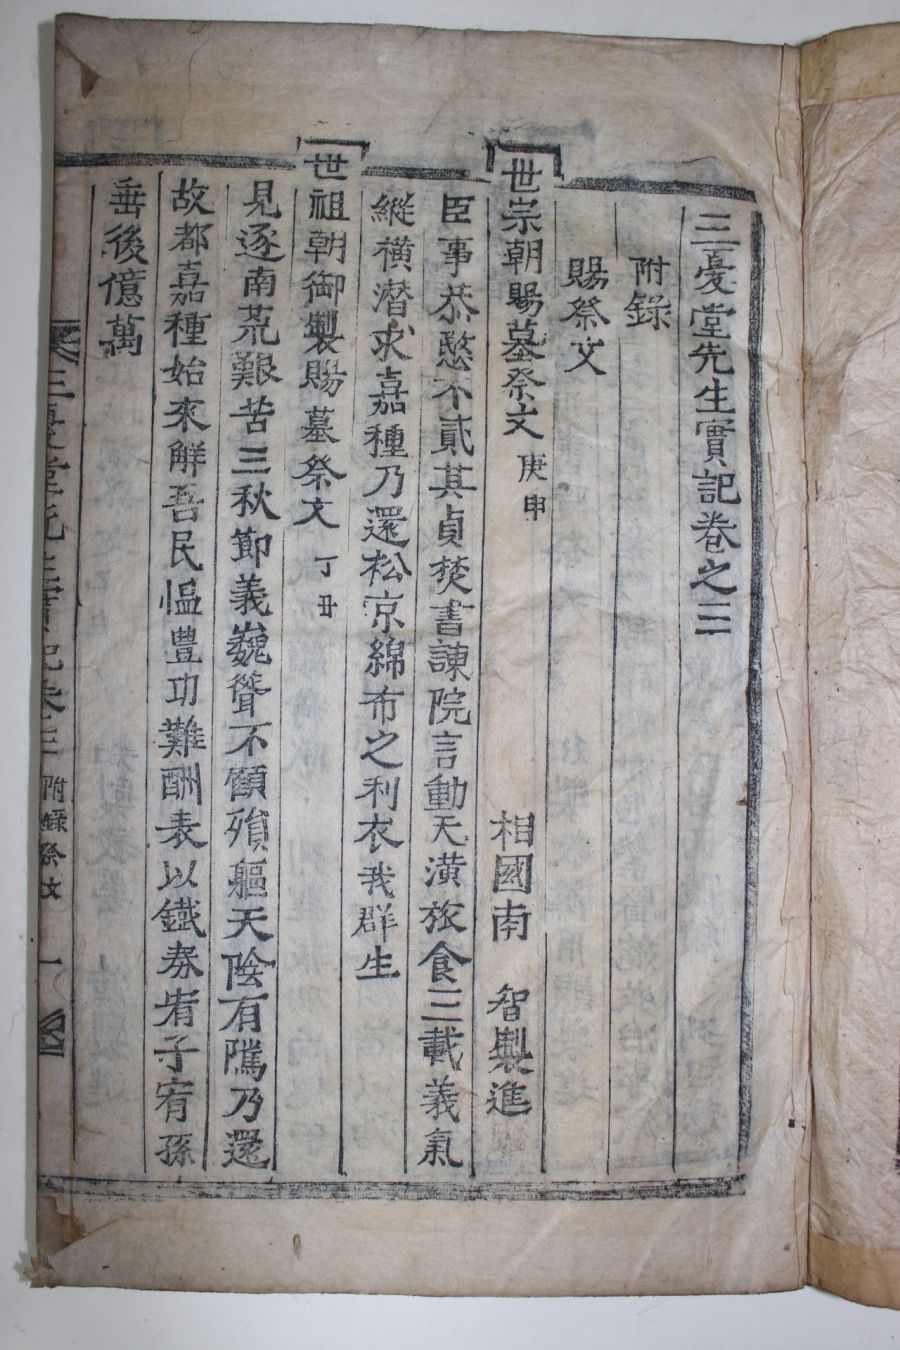 三憂堂先生實記卷之三
附錄
賜祭文
世宗朝賜墓祭文 庚申 相國南 智製進
臣事恭愍不貳其貞焚書諫院言動天潢旅食三載義氣
縱橫潜求嘉種乃還松京綿布之利衣我群生
世祖朝御製賜墓祭文 丁丑
見逐南荒艱苦三秋節義巍聳不顧殞軀天陰有騭乃還
故都嘉種始來解吾民慍豊功難酬表以鐵券宥子宥孫
垂後億萬
三憂堂先生實記卷三 附錄祭文 一